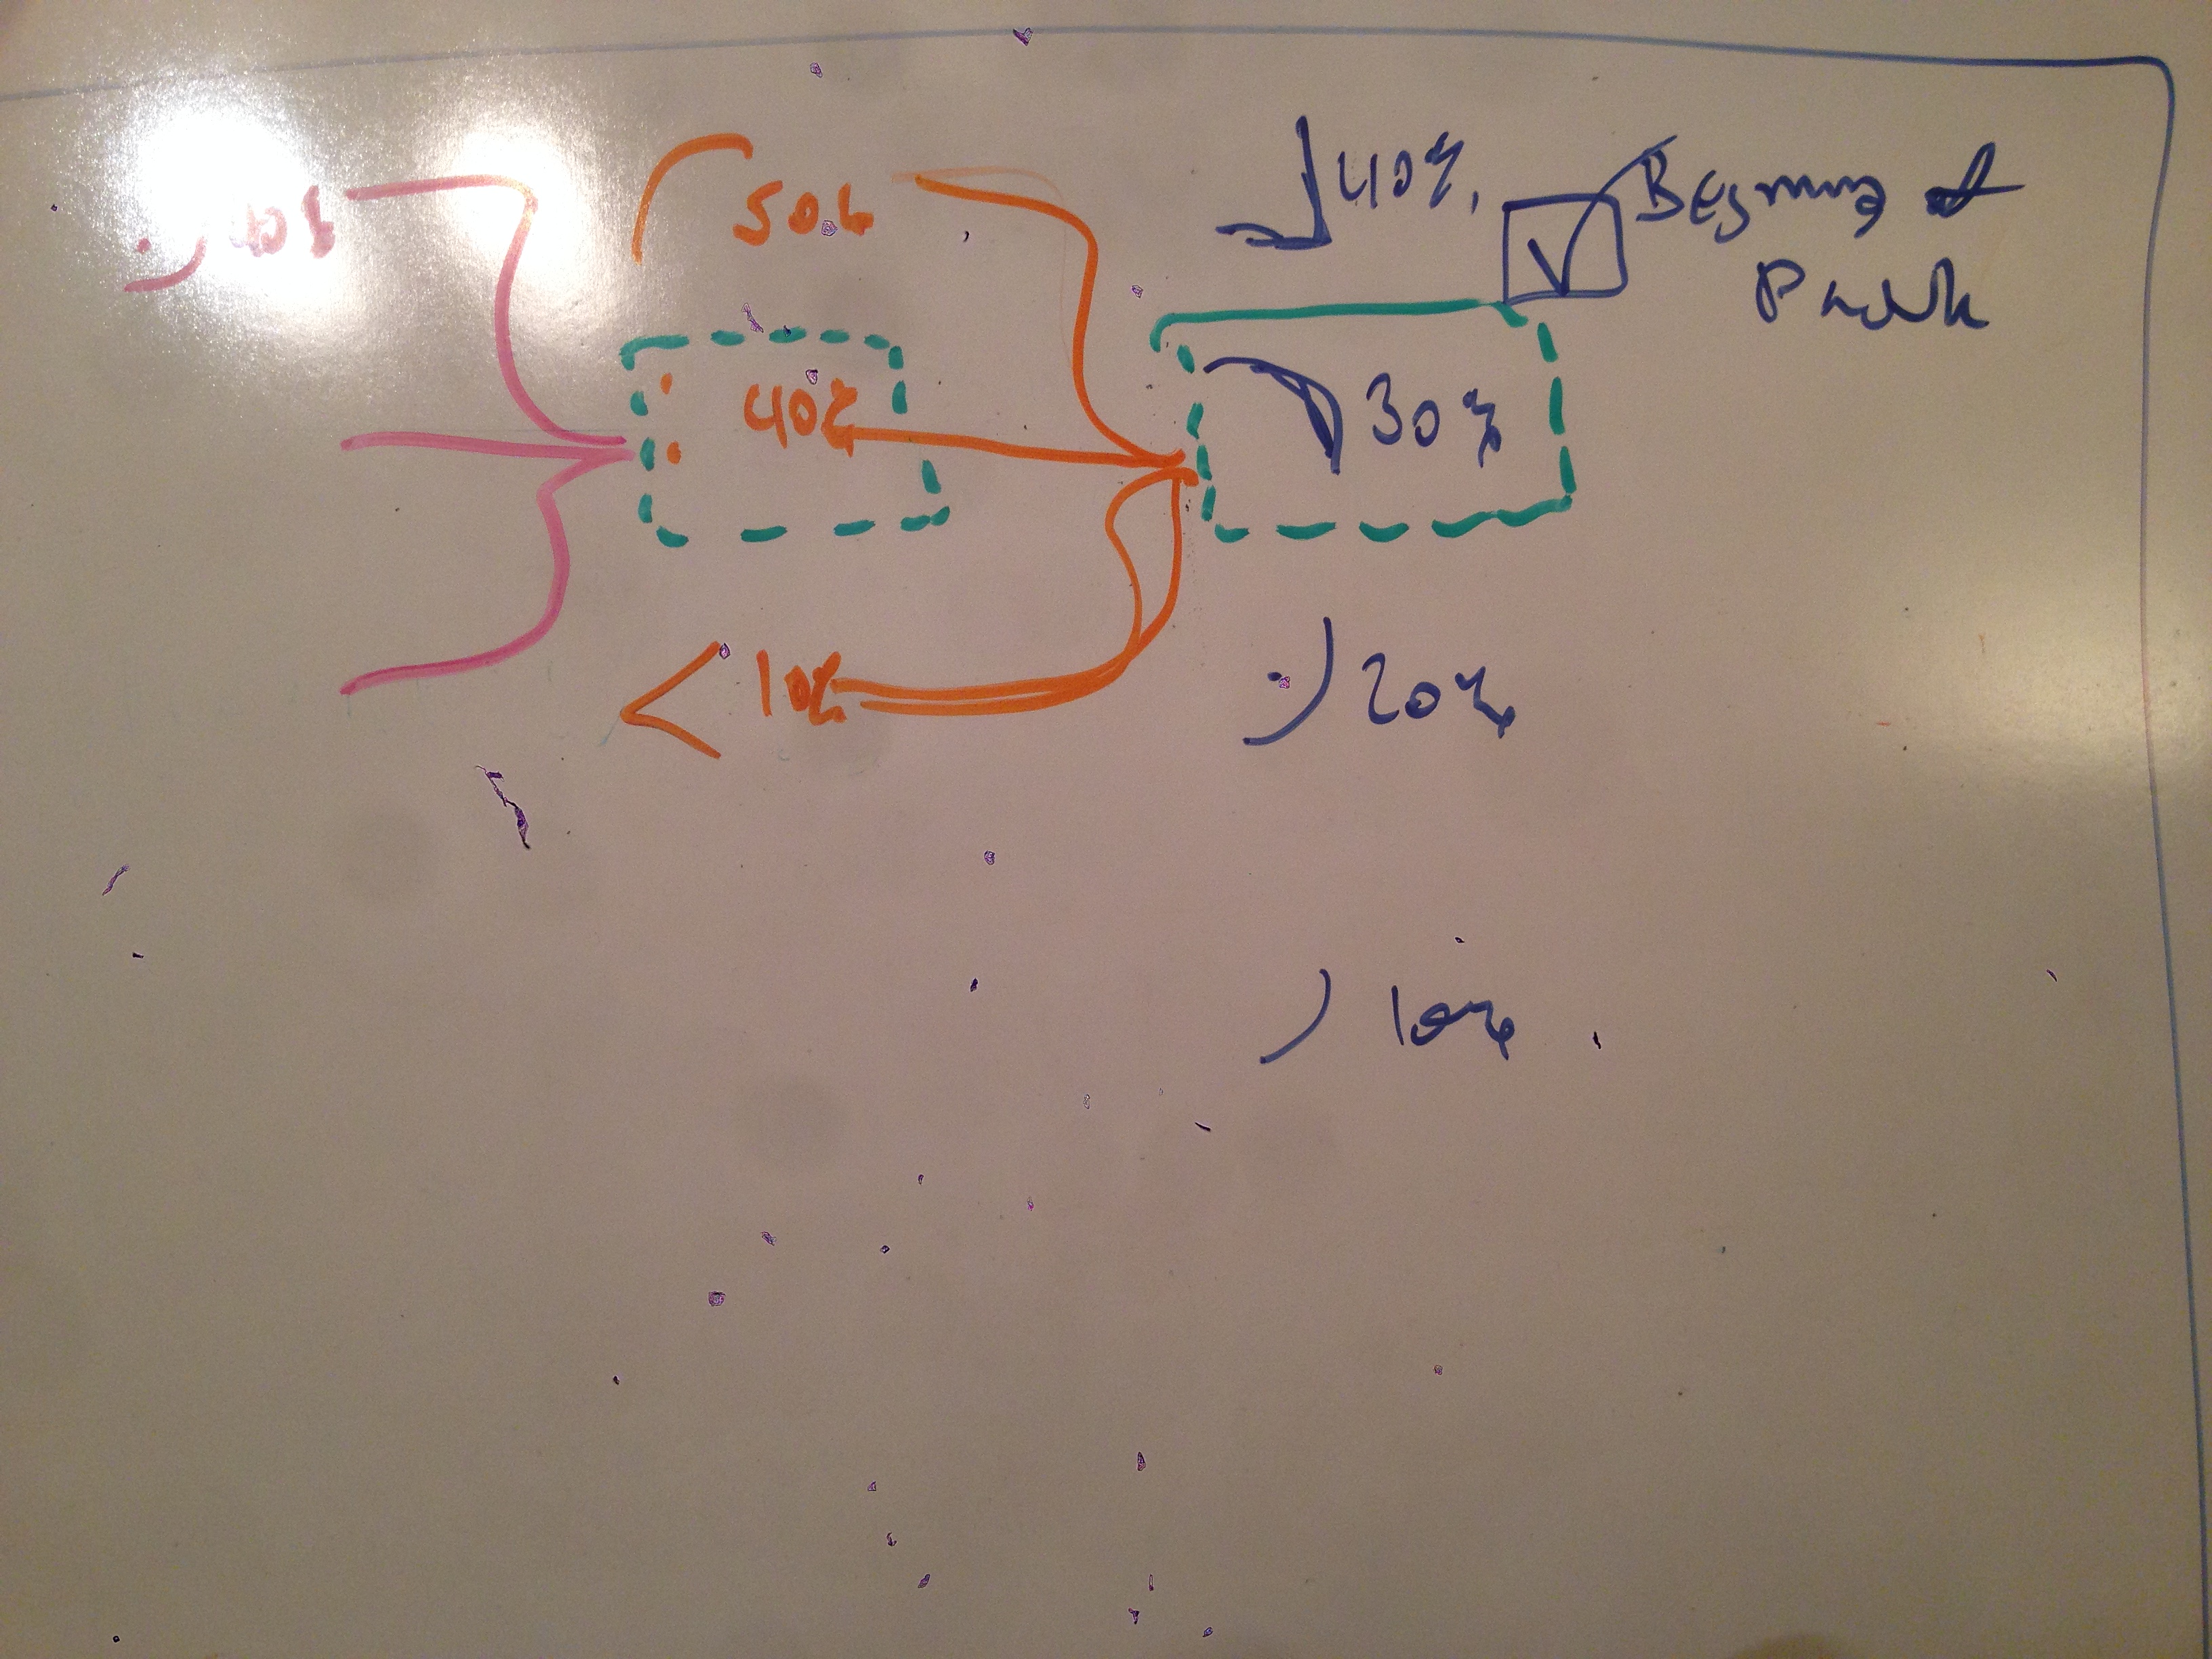 50%
40%
10%
40%.
Begining of
30%
20%
10%